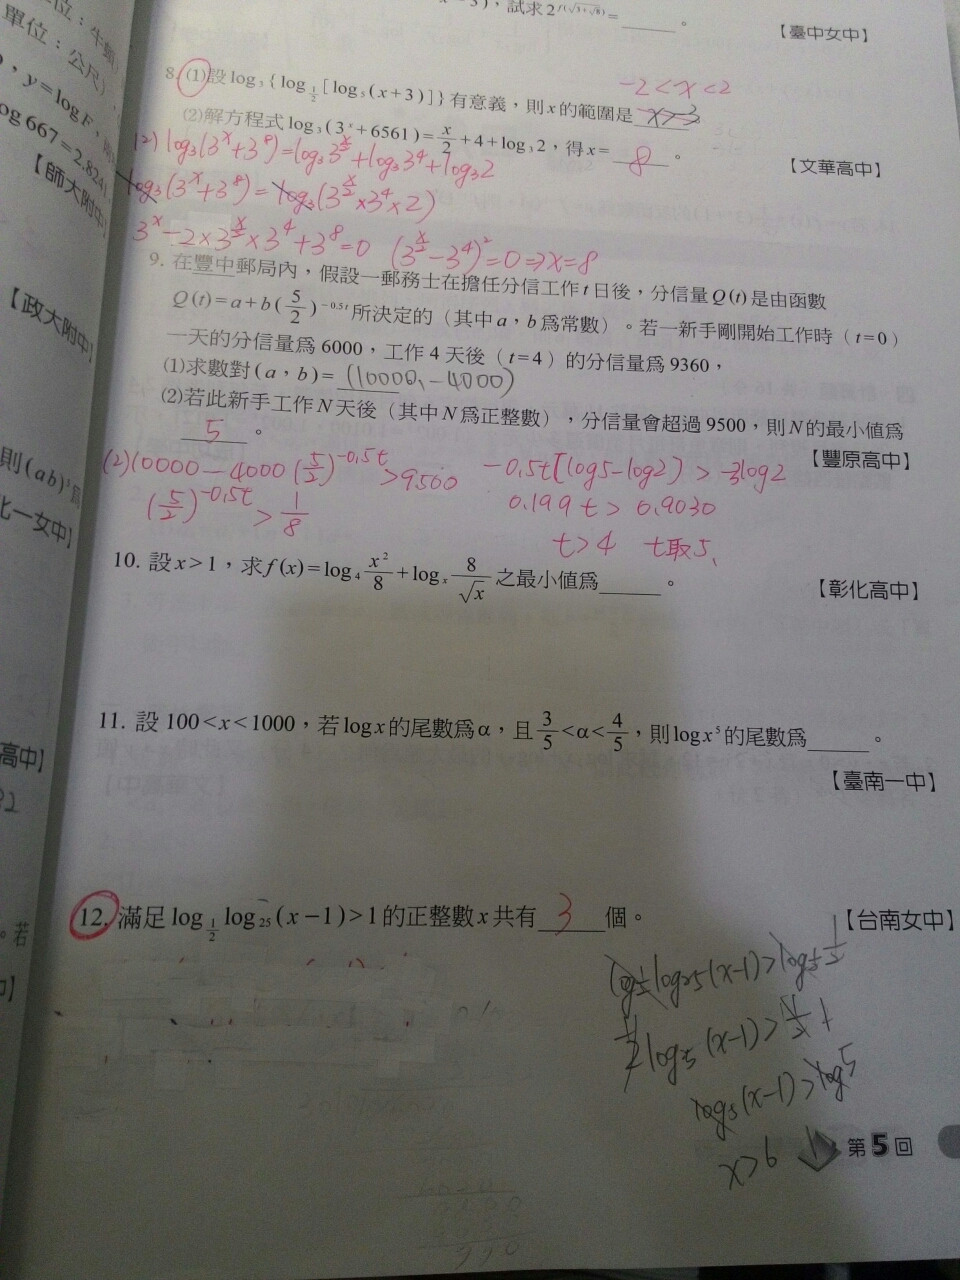 位：牛頓）
單位：公尺）
，y=logF，
og 667=2.824
【師大附中】
【政大附中】
則(ab)³爲
北一女中】
高中】
。若
，試求2
=______。
【臺中女中】
8. (1)設log₃{log_{1/2}[log₅(x+3)]}有意義，則x的範圍是 x>-3
-2<x<2
(2)解方程式log₃(3ˣ+6561)=x/2+4+log₃2，得x= 8 。
【文華高中】
(2) log₃(3ˣ+3⁸)=log₃3^{x/2}+log₃3⁴+log₃2
log₃(3ˣ+3⁸)=log₃(3^{x/2}×3⁴×2)
3ˣ-2×3^{x/2}×3⁴+3⁸=0 (3^{x/2}-3⁴)²=0⇒x=8
9. 在豐中郵局內，假設一郵務士在擔任分信工作t日後，分信量Q(t)是由函數
Q(t)=a+b(5/2)^{-0.5t}所決定的（其中a，b爲常數）。若一新手剛開始工作時（t=0）
一天的分信量爲6000，工作4天後（t=4）的分信量爲9360，
(1)求數對(a，b)= (10000,-4000)
(2)若此新手工作N天後（其中N爲正整數），分信量會超過9500，則N的最小值爲
5 。
【豐原高中】
(2)10000-4000(5/2)^{-0.5t}>9500
(5/2)^{-0.5t}>1/8
-0.5t[log5-log2)>-3log2
0.199t>0.9030
t>4 t取5
10. 設x>1，求f(x)=log₄ x²/8+logₓ 8/√x 之最小值爲______。
【彰化高中】
11. 設100<x<1000，若logx的尾數爲α，且3/5<α<4/5，則logx⁵的尾數爲______。
【臺南一中】
12. 滿足log_{1/2}log₂₅(x-1)>1的正整數x共有 3 個。
【台南女中】
log_{1/2}log₂₅(x-1)>log_{1/2}1/2
1/2 log₅(x-1)>1/2
log₅(x-1)>log5
x>6
第5回